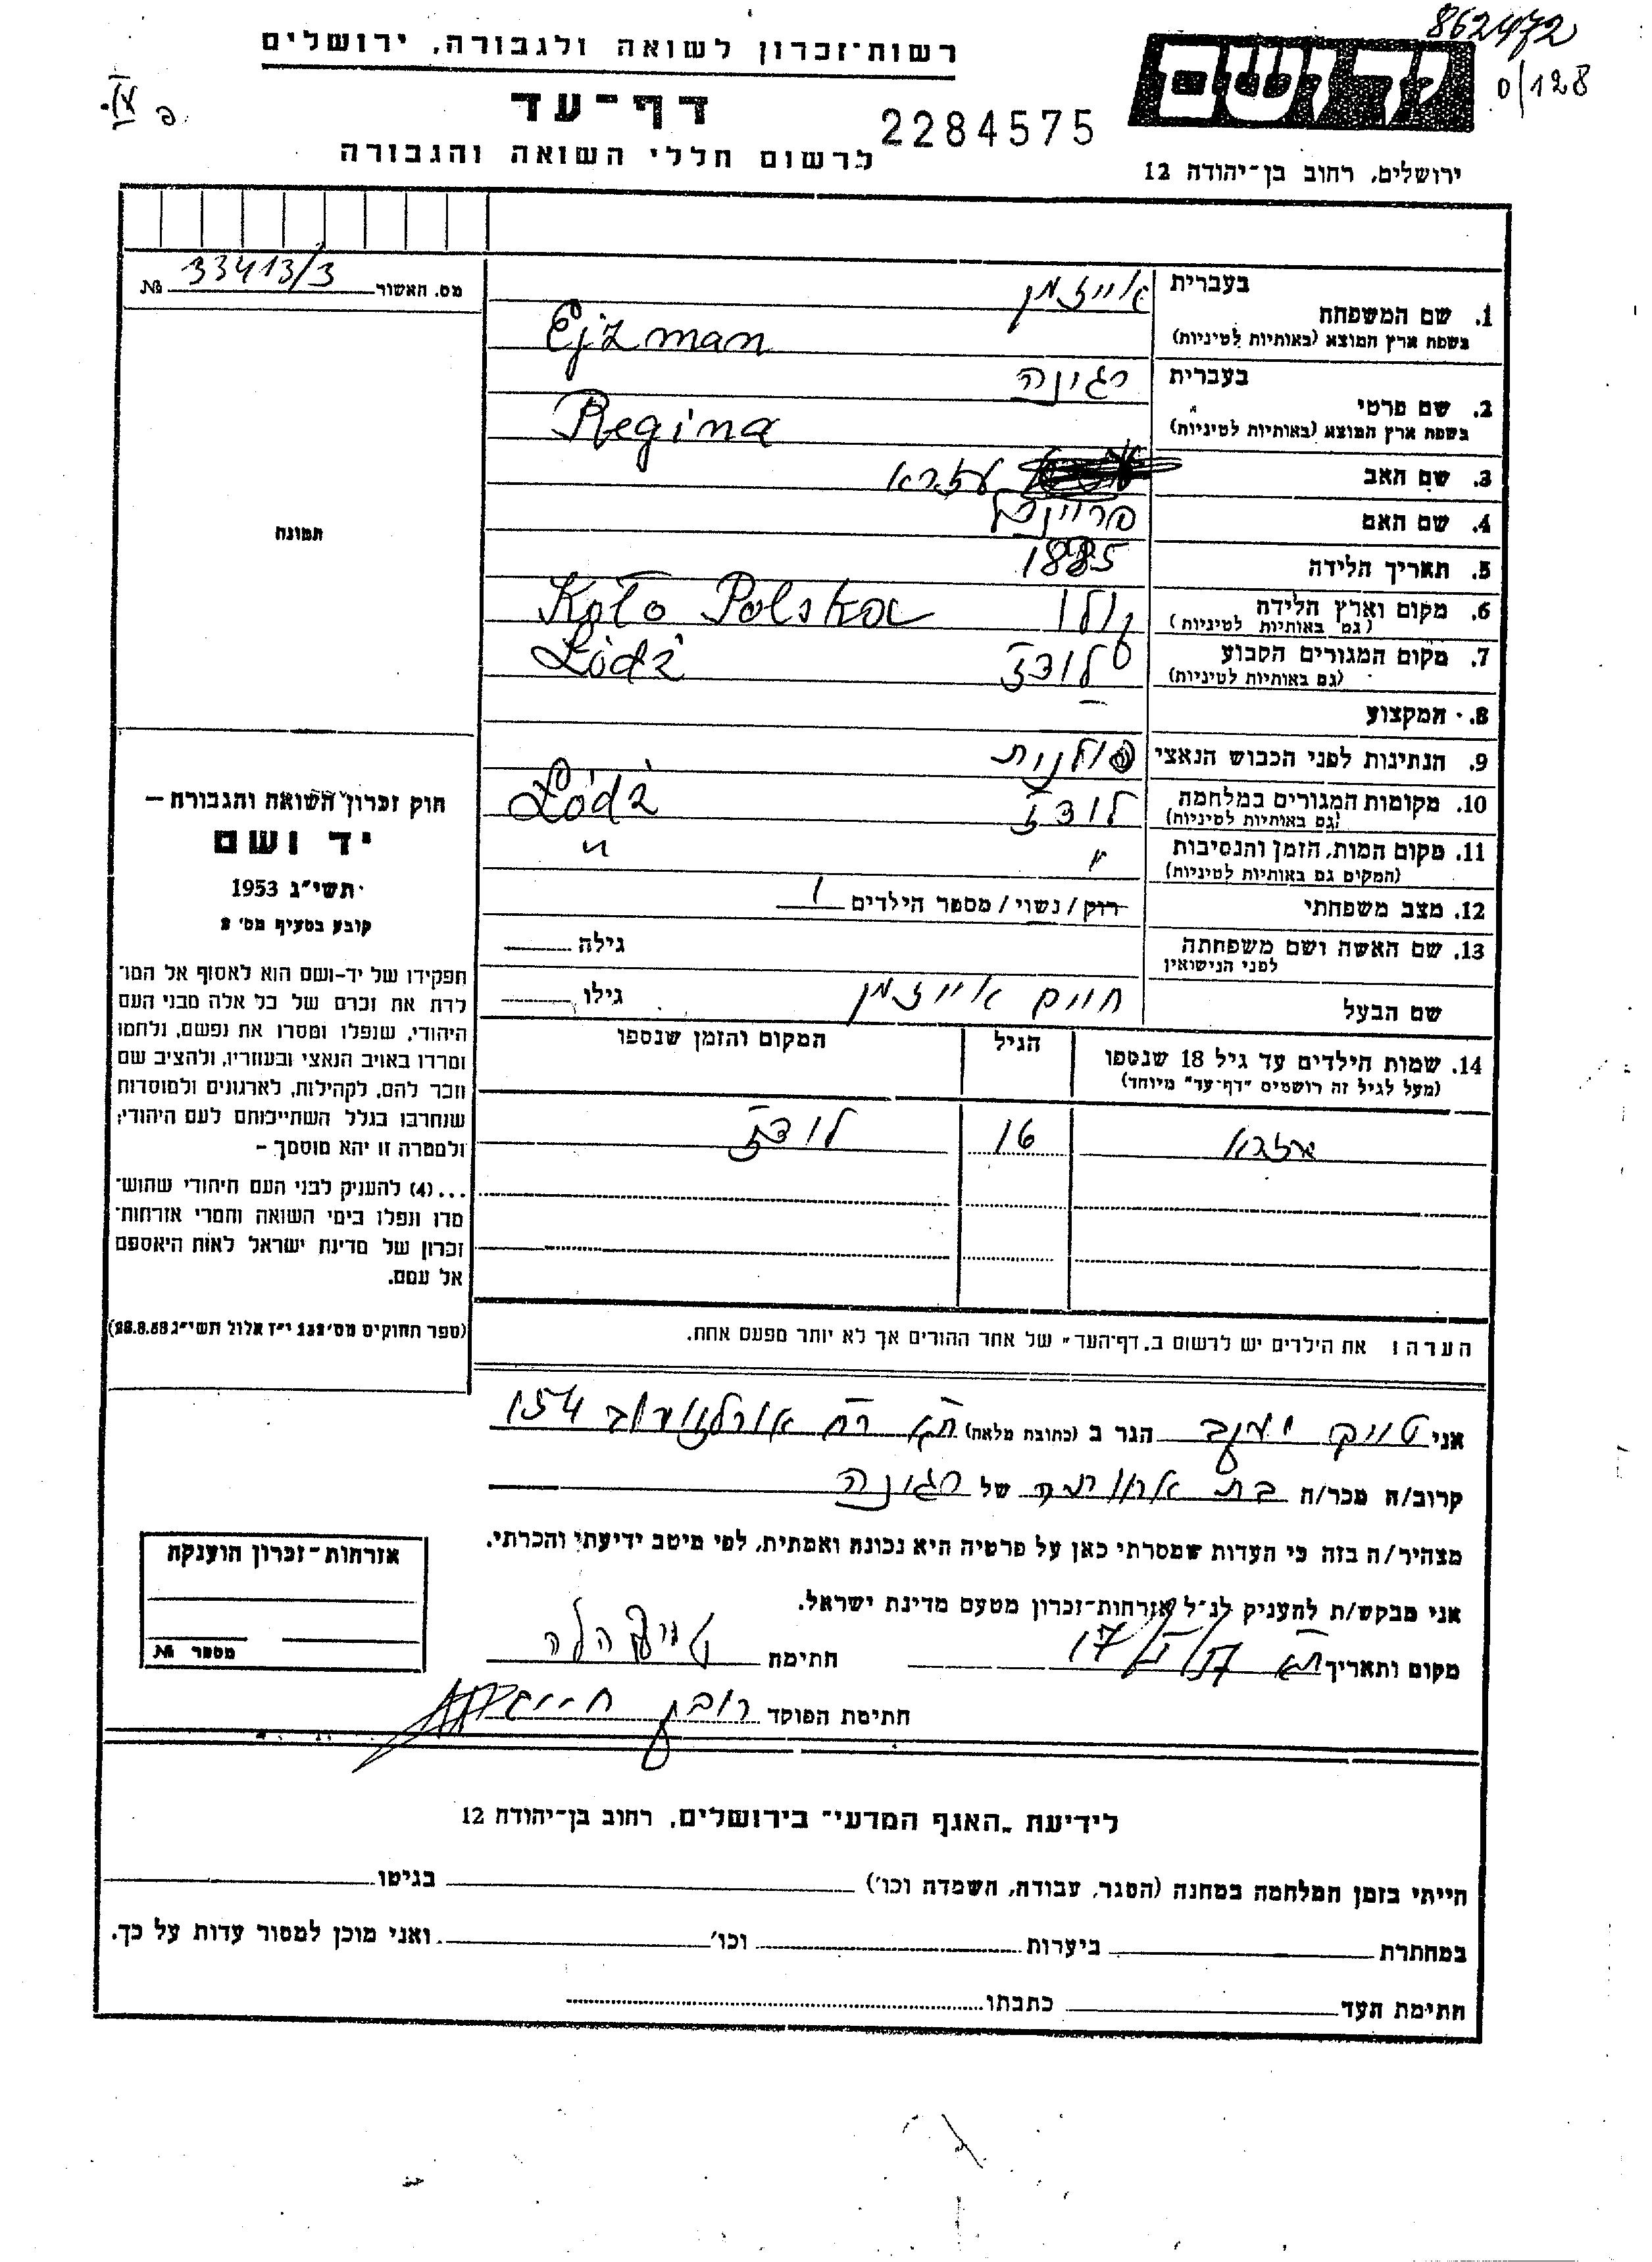 862472
0/128
רשות־זכרון לשואה ולגבורה, ירושלים
דף־עד
2284575
לרשום חללי השואה והגבורה
יד ושם
ירושלים, רחוב בן־יהודה 12
מס. האשור 33413/3 №
בעברית
אייזמן
1. שם המשפחה
בשפת ארץ המוצא (באותיות לטיניות)
Ejzman
בעברית
רגינה
2. שם פרטי
בשפת ארץ המוצא (באותיות לטיניות)
Regina
3. שם האב
עזרא
4. שם האם
5. תאריך הלידה
1885
6. מקום וארץ הלידה
(גם באותיות לטיניות)
קולו Koło Polska
7. מקום המגורים הקבוע
(גם באותיות לטיניות)
לודז Łódź
8. המקצוע –
9. הנתינות לפני הכבוש הנאצי
פולנית
10. מקומות המגורים במלחמה
(גם באותיות לטיניות)
לודז Łódź
11. מקום המות, הזמן והנסיבות
(המקום גם באותיות לטיניות)
" "
12. מצב משפחתי
רוק / נשוי / מספר הילדים 1
13. שם האשה ושם משפחתה
לפני הנישואין
גילה
שם הבעל
חיים אייזמן
גילו
14. שמות הילדים עד גיל 18 שנספו
(מעל לגיל זה רושמים "דף־עד" מיוחד)
הגיל
המקום והזמן שנספו
עזרא 16 לודז
תמונה
חוק זכרון השואה והגבורה —
יד ושם
תשי"ג 1953
קובע בסעיף מס' 2
תפקידו של יד־ושם הוא לאסוף אל המו־
לדת את זכרם של כל אלה מבני העם
היהודי, שנפלו ומסרו את נפשם, נלחמו
ומרדו באויב הנאצי ובעוזריו, ולהציב שם
וזכר להם, לקהילות, לארגונים ולמוסדות
שנחרבו בגלל השתייכותם לעם היהודי;
ולמטרה זו יהא מוסמך –
...(4) להעניק לבני העם היהודי שהוש־
מדו ונפלו בימי השואה והמרי אזרחות־
זכרון של מדינת ישראל לאות היאספם
אל עמם.
(ספר החוקים מס' 132 י"ז אלול תשי"ג 28.8.53)
הערה: את הילדים יש לרשום ב"דף־העד" של אחד ההורים אך לא יותר מפעם אחת.
אני טויק יעקב הגר ב (כתובת מלאה) ת"א רח ארלוזורוב 154
קרוב/ה מכר/ה בת אחותה של רגינה
מצהיר/ה בזה כי העדות שמסרתי כאן על פרטיה היא נכונה ואמתית, לפי מיטב ידיעתי והכרתי.
אני מבקש/ת להעניק לנ"ל אזרחות־זכרון מטעם מדינת ישראל.
מקום ותאריך ת"א
חתימה הלה
חתימת הפוקד ראובן
אזרחות־זכרון הוענקה
מספר №
לידיעת "האגף המדעי" בירושלים, רחוב בן־יהודה 12
הייתי בזמן המלחמה במחנה (הסגר, עבודה, השמדה וכו') בגיטו
במחתרת ביערות וכו' ואני מוכן למסור עדות על כך.
חתימת העד כתבתו